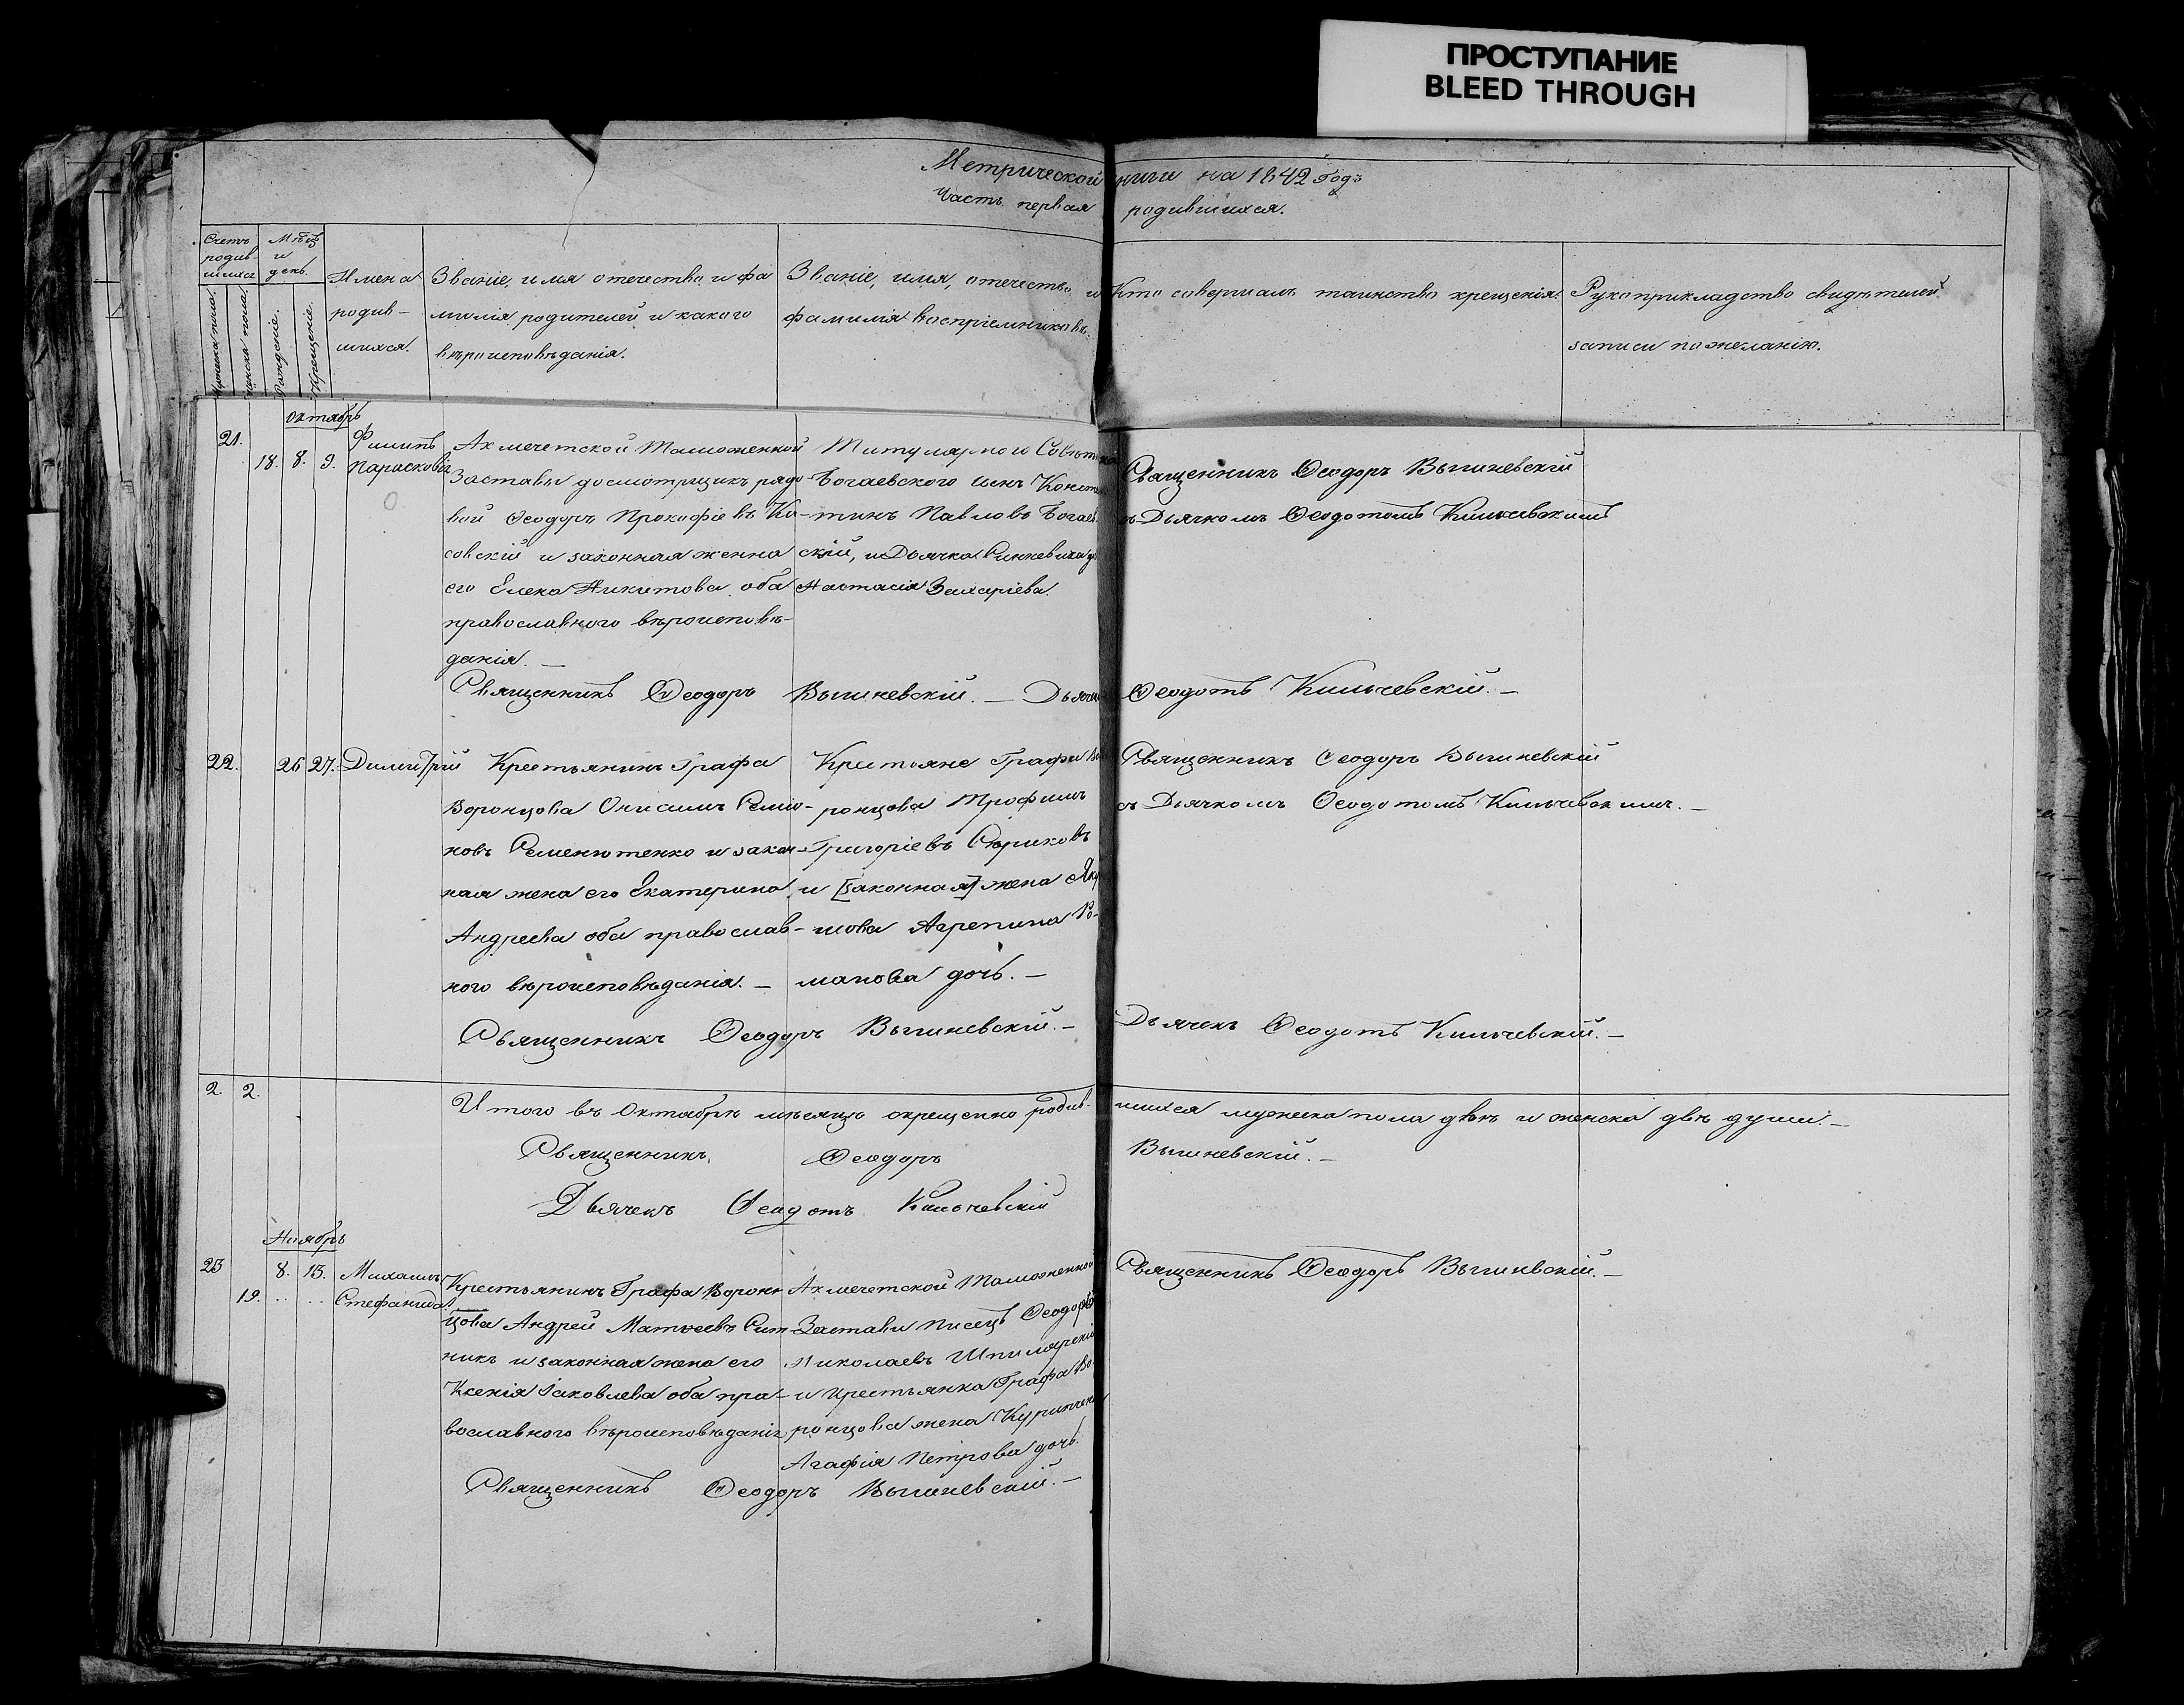 ПРОСТУПАНИЕ
BLEED THROUGH
Метрической книги на 1842 Годъ
Часть первая родившихся.
Счетъ родив-шихся
Мѣсяцъ и день.
Мужеска пола.
Женска пола.
Рожденіе.
Крещеніе.
Имена родив-шихся.
Званіе, имя отечество и фа
милія родителей и какого
вѣроисповѣданія.
Званіе, имя, отечество и
фамилія воспріемниковъ.
Кто совершалъ таинство крещенія.
Рукоприкладство свидѣтелей
записи по желанію.
Октябрь
21.
18. 8. 9.
Филипъ
Парасковія
Ахмечетской Таможенной
Заставы досмотрщикъ рядо-
вой Ѳеодоръ Прокофіевъ Ко-
совскій и законная женна
его Елена Никитова оба
православного вѣроисповѣ-
данія. —
Титулярного Совѣтн
Богаевского сынъ Конста
тинъ Павловъ Богаев
скій, и Дьячка
Настасія Захаріева.
Священникъ Ѳеодоръ Вышневскій
съ Дьячкомъ Ѳеодотомъ Кильчевскимъ
Священникъ Ѳеодоръ Вышневскій. — Дьячекъ Ѳеодотъ Кильчевскій. —
22. 26 27. Димитрій
Крестьянинъ Графа
Воронцова Онисимъ Семіо-
новъ Семенютенко и закон-
ная жена его Екатерина
Андреева оба православ-
ного вѣроисповѣданія. —
Крестьяне Графа Во
ронцова Трофимъ
Григоріевъ Сюриковъ
и [законная] жена Яку
шова Агрепина Ро-
манова дочь. —
Священникъ Ѳеодоръ Вышневскій
съ Дьячкомъ Ѳеодотомъ Кильчевскимъ. —
Священникъ Ѳеодоръ Вышневскій. — Дьячекъ Ѳеодотъ Кильчевскій. —
2. 2.
Итого въ Октябрѣ мѣсяцѣ окрещенно родив-шихся мужеска пола двѣ и женска двѣ души. —
Священникъ Ѳеодоръ Вышневскій. —
Дьячекъ Ѳеодотъ Кильчевскій
Ноябрь
23 8. 13. Михаилъ
19. .. .. Стефанида
Крестьянинъ Графа Ворон
цова Андрей Матвеевъ Сит
никъ и законная жена его
Ксенія Іаковлева оба пра-
вославного вѣроисповѣданія
Ахмечетской Таможенной
Заставы писецъ Ѳеодоръ
Николаевъ Шпилярскій
и крестьянка Графа Во-
ронцова жена
Агафія Петрова дочь.
Священникъ Ѳеодоръ Вышневскій. —
Священникъ Ѳеодоръ Вышневскій. —